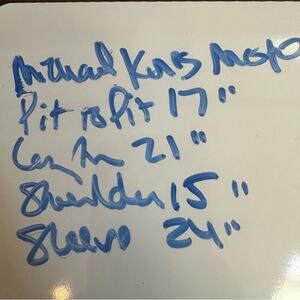 Michael Kors
Pit to Pit 17"
Length 21"
Shoulder 15"
Sleeve 24"